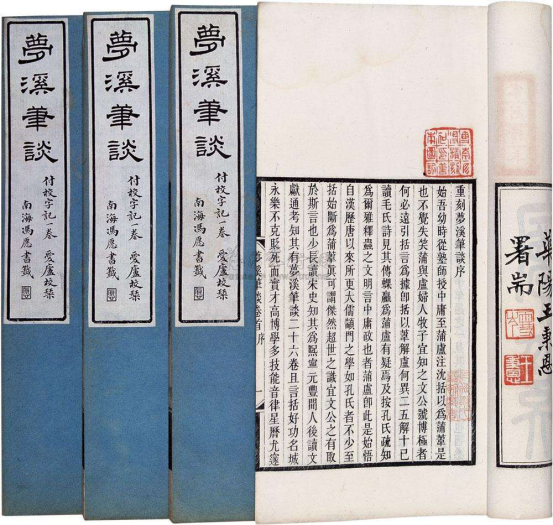 夢溪筆談
付校字記一卷 愛廬校栞
南海馮愿書籤
夢溪筆談
付校字記一卷 愛廬校栞
南海馮愿書籤
夢溪筆談
付校字記一卷 愛廬校栞
南海馮愿書籤
華陽王秉恩
署耑
重刻夢溪筆談序
始吾幼時從塾師授中庸至蒲盧注沈括以爲蒲葦是
也不覺失笑蒲與盧婦人牧子宜知之文公號博極者
何必遠引括言爲據卽括以葦解盧何異二五解十已
讀毛氏詩見其傳螺蠃爲蒲盧有疑焉及按孔氏疏知
爲爾雅釋蟲之文明言中庸政也者蒲盧卽此是始悟
自漢歷唐以來所更大儒顓門之學如孔氏者不少至
括始斷爲蒲葦眞可謂傑然超世之識宜文公之有取
於斯言也少長讀宋史知其爲熙寧元豐間人後讀文
獻通考知其有夢溪筆談二十六卷且言括好功名城
永樂不克貶死而實才高博學多技能音律星曆尤邃
夢溪筆談卷首 序 一